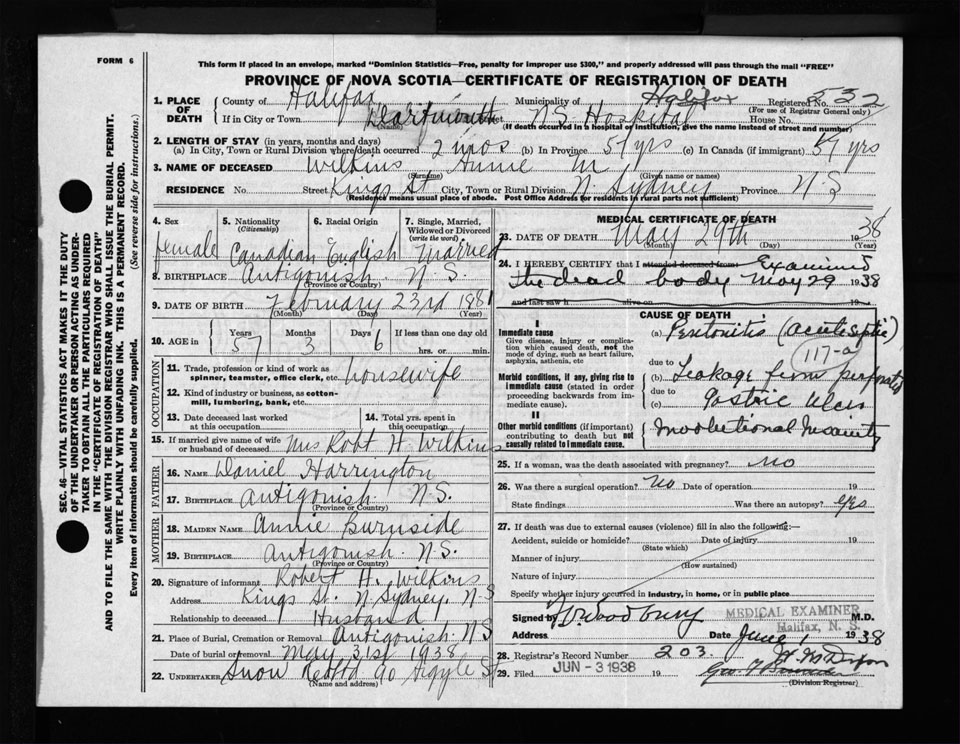 FORM 6
This form if placed in an envelope, marked "Dominion Statistics—Free, penalty for improper use $300," and properly addressed will pass through the mail "FREE"
PROVINCE OF NOVA SCOTIA—CERTIFICATE OF REGISTRATION OF DEATH
1. PLACE OF DEATH County of Halifax Municipality of Halifax Registered No. 532
(For use of Registrar General only)
If in City or Town Dartmouth Street N.S. Hospital House No.
(Name) (If death occurred in a hospital or institution, give the name instead of street and number)
2. LENGTH OF STAY (in years, months and days)
(a) In City, Town or Rural Division where death occurred 2 mos (b) In Province 57 yrs (c) In Canada (if immigrant) 57 yrs
3. NAME OF DECEASED Wilkins Annie M
(Surname) (Given name or names)
RESIDENCE No. Street Kings St City, Town or Rural Division N. Sydney Province N.S
(Residence means usual place of abode. Post Office Address for residents in rural parts not sufficient)
4. Sex 5. Nationality (Citizenship) 6. Racial Origin 7. Single, Married, Widowed or Divorced (write the word)
female Canadian English Married
8. BIRTHPLACE Antigonish N.S.
(Province or Country)
9. DATE OF BIRTH February 23rd 1881
(Month) (Day) (Year)
10. AGE in Years 57 Months 3 Days 6 If less than one day old
hrs. or min.
OCCUPATION
11. Trade, profession or kind of work as spinner, teamster, office clerk, etc. housewife
12. Kind of industry or business, as cotton-mill, lumbering, bank, etc.
13. Date deceased last worked at this occupation 14. Total yrs. spent in this occupation
15. If married give name of wife or husband of deceased Mrs Robt H. Wilkins
FATHER
16. NAME Daniel Harrington
17. BIRTHPLACE Antigonish N.S.
(Province or Country)
MOTHER
18. MAIDEN NAME Annie Burnside
19. BIRTHPLACE Antigonish N.S.
(Province or Country)
20. Signature of informant Robert H. Wilkins
Address Kings St. N Sydney, N-S
Relationship to deceased Husband
21. Place of Burial, Cremation or Removal Antigonish N.S
Date of burial or removal May 31st 1938
22. UNDERTAKER Snow Co Argyle St
(Name and address)
MEDICAL CERTIFICATE OF DEATH
23. DATE OF DEATH May 29th 1938
(Month) (Day) (Year)
24. I HEREBY CERTIFY that I attended deceased from Examined
the dead body May 29 1938
and last saw h alive on 19
CAUSE OF DEATH
I
Immediate cause (a) Peritonitis (acute septic)
Give disease, injury or complication which caused death, not the mode of dying, such as heart failure, asphyxia, asthenia, etc
117-a
due to
Morbid conditions, if any, giving rise to immediate cause (stated in order proceeding backwards from immediate cause). (b) Leakage from perforated
due to
(c) Gastric Ulcer
II
Other morbid conditions (if important) contributing to death but not causally related to immediate cause. Involutional Insanity
25. If a woman, was the death associated with pregnancy? no
26. Was there a surgical operation? no Date of operation 19
State findings Was there an autopsy? yes
27. If death was due to external causes (violence) fill in also the following:—
Accident, suicide or homicide? Date of injury 19
(State which)
Manner of injury
(How sustained)
Nature of injury
Specify whether injury occurred in industry, in home, or in public place
Signed by M.D.
MEDICAL EXAMINER
Halifax, N. S.
Address Date June 1 1938
28. Registrar's Record Number 203
29. Filed JUN-3 1938 19
(Division Registrar)
SEC. 46—VITAL STATISTICS ACT MAKES IT THE DUTY OF THE UNDERTAKER OR PERSON ACTING AS UNDERTAKER TO OBTAIN ALL THE PARTICULARS REQUIRED IN THE "CERTIFICATE OF REGISTRATION OF DEATH" AND TO FILE THE SAME WITH THE DIVISION REGISTRAR WHO SHALL ISSUE THE BURIAL PERMIT.
WRITE PLAINLY WITH UNFADING INK. THIS IS A PERMANENT RECORD.
Every item of information should be carefully supplied. (See reverse side for instructions.)